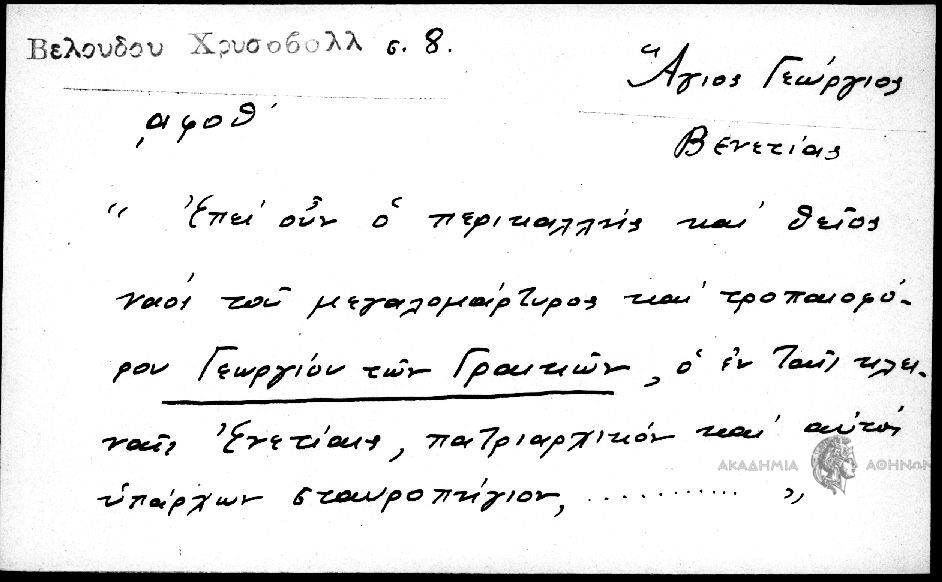 Βελουδου Χρυσοβολλ σ. 8.
Ἅγιος Γεώργιος
Βενετίας
͵αφοθ´
“ Ἐπεὶ οὖν ὁ περικαλλὴς καὶ θεῖος
ναὸς τοῦ μεγαλομάρτυρος καὶ τροπαιοφό-
ρου Γεωργίου τῶν Γραικῶν, ὁ ἐν ταῖς κλει-
ναῖς Ἐνετίαις, πατριαρχικὸν καὶ αὐτὸς
ὑπάρχων σταυροπήγιον, ............ ”
ΑΚΑΔΗΜΙΑ ΑΘΗΝΩΝ